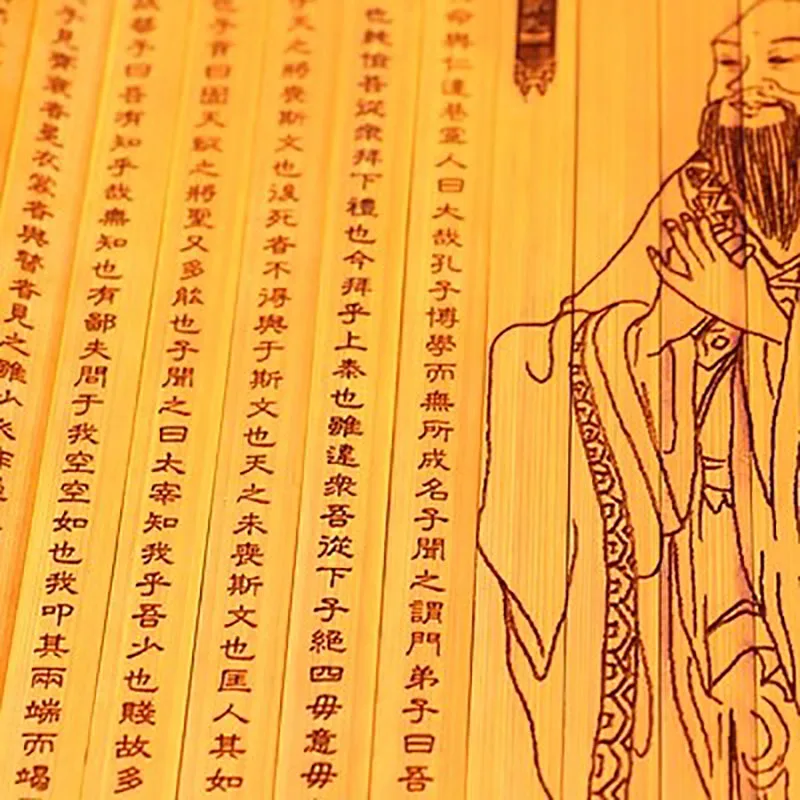 命與仁達巷黨人曰大哉孔子博學而無所成名子聞之謂門弟子曰吾
也純儉吾從眾拜下禮也今拜乎上泰也雖違眾吾從下子絕四毋意毋
天之將喪斯文也後死者不得與于斯文也天之未喪斯文也匡人其如
也子貢曰固天縱之將聖又多能也子聞之曰太宰知我乎吾少也賤故多
藝子曰吾有知乎哉無知也有鄙夫問于我空空如也我叩其兩端而竭
子見齊衰者冕衣裳者與瞽者見之雖少